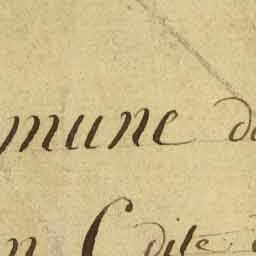 mune de
n C dite